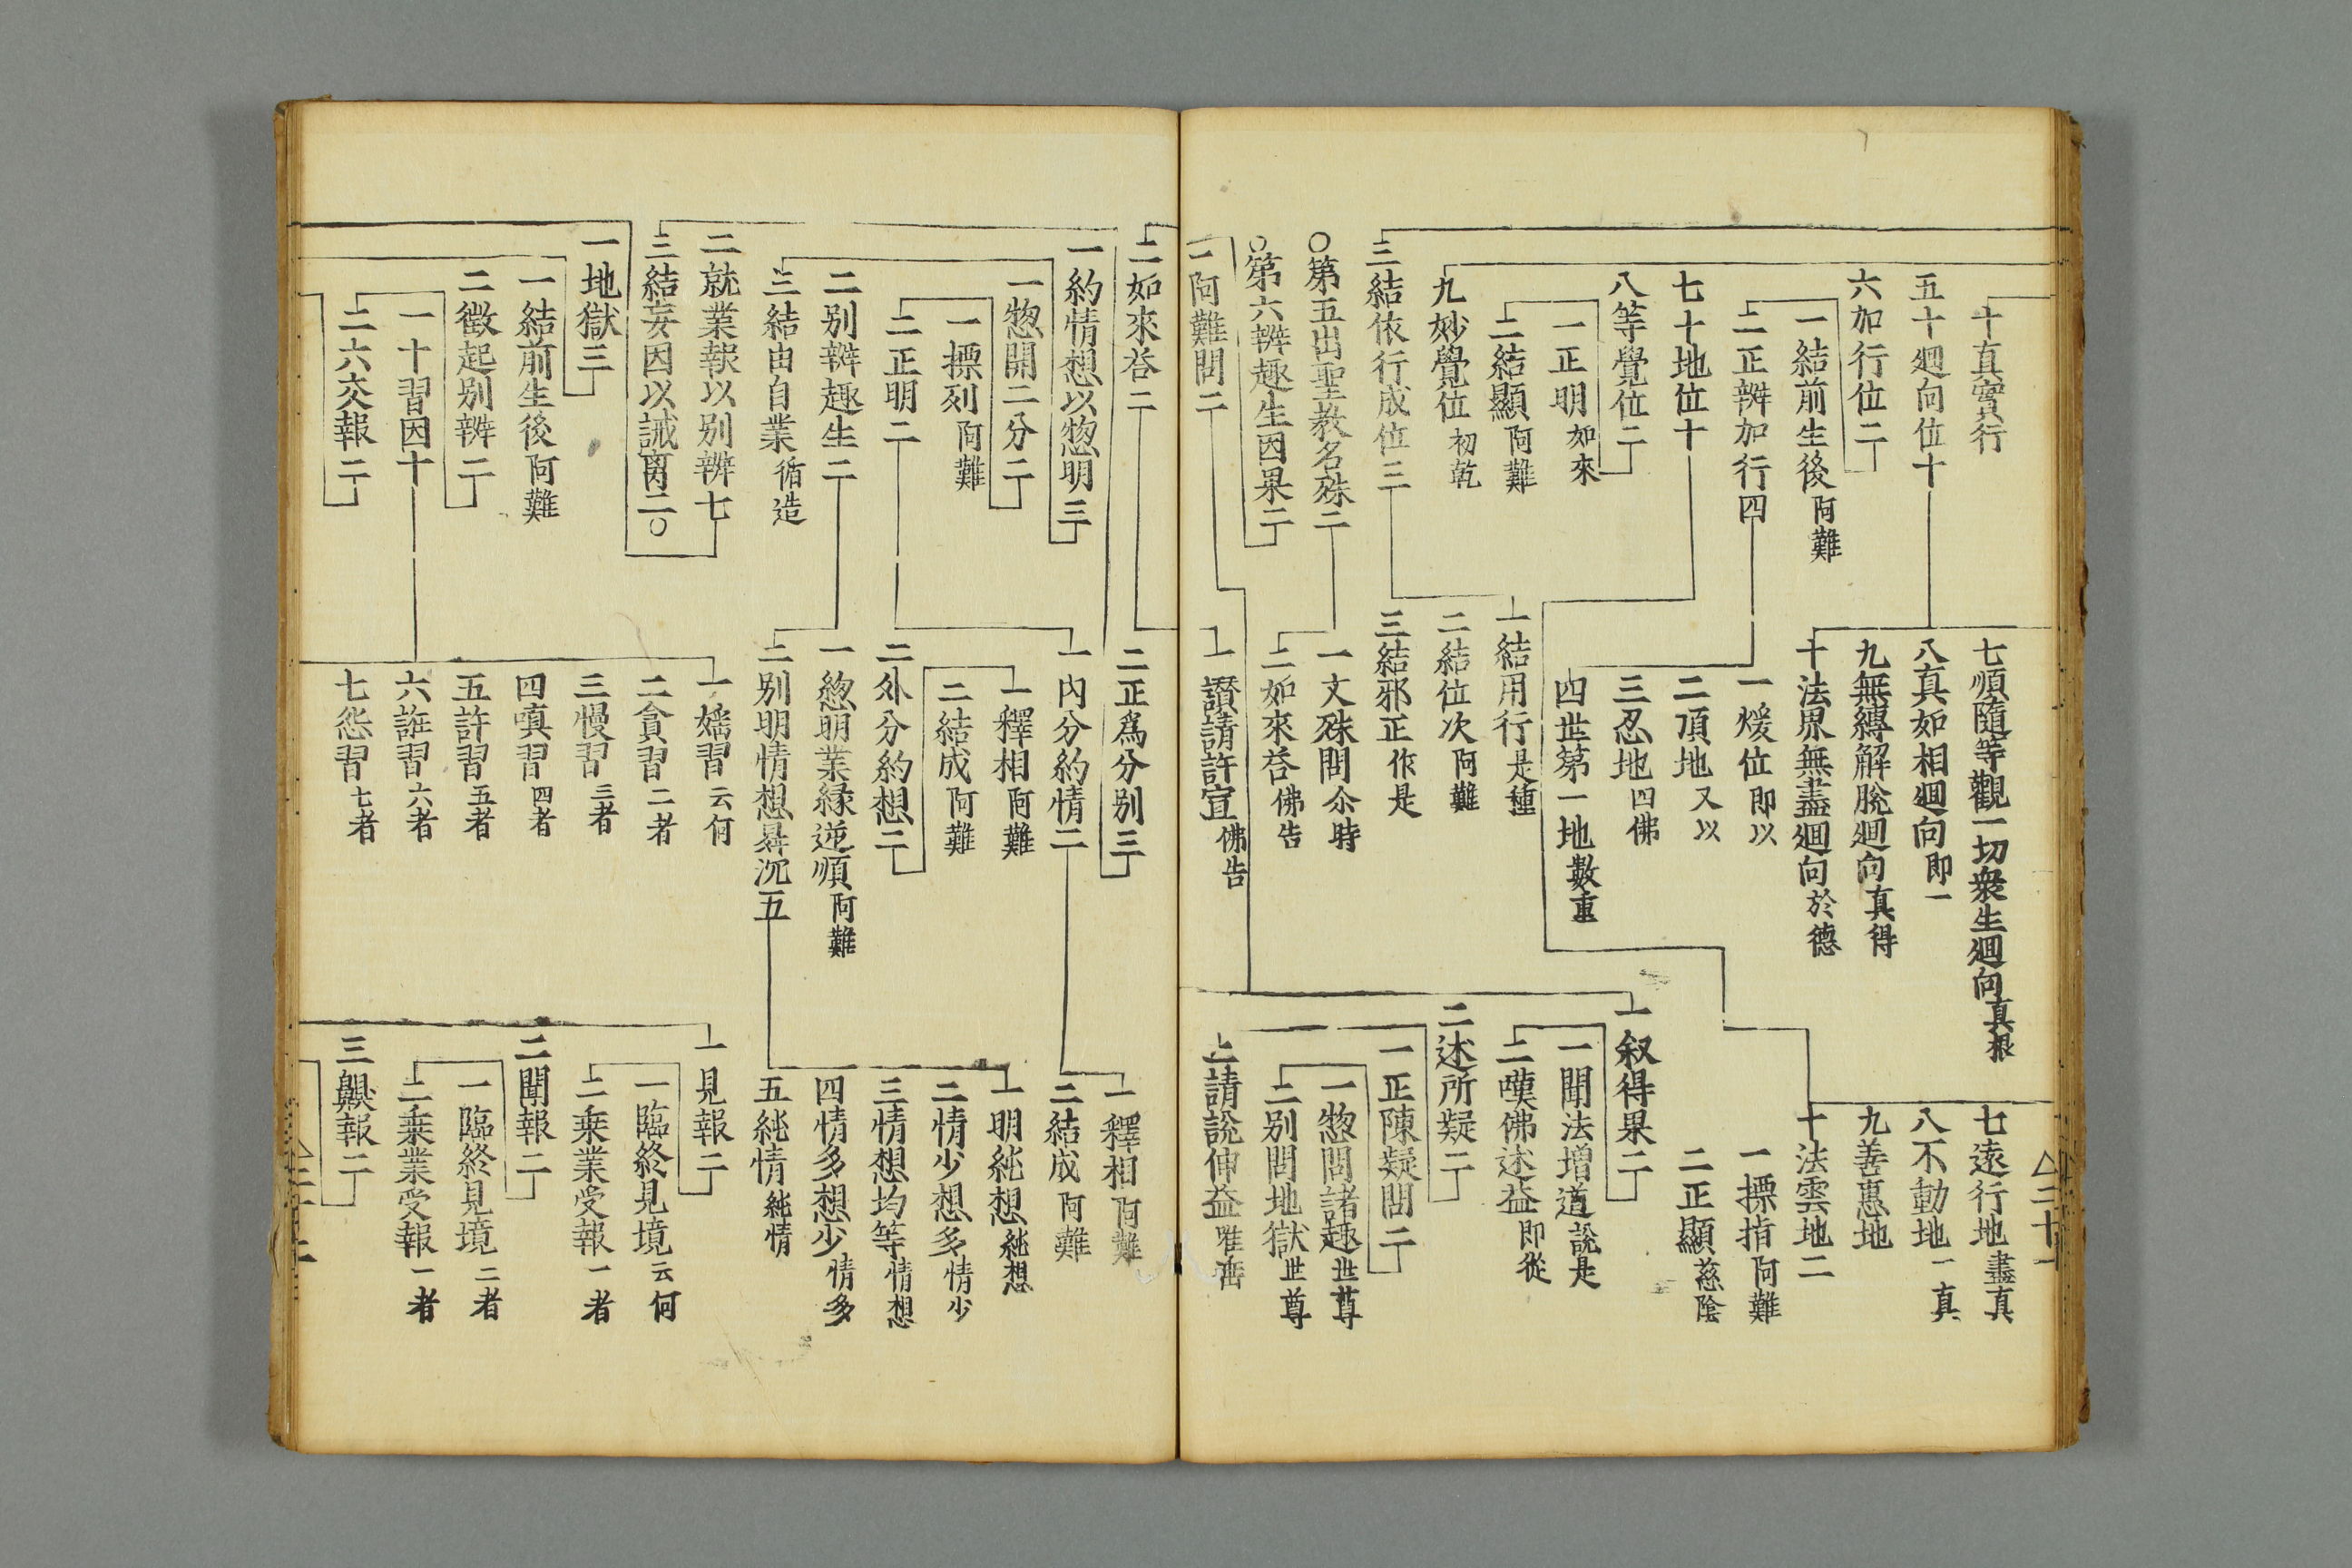 十真實行
五十廻向位十
六加行位二
一結前生後 阿難
二正辨加行四
七十地位十
八等覺位二
一正明 如來
二結顯 阿難
九妙覺位 初乾
三結依行成位三
○第五出聖教名殊二
○第六辨趣生因果二
一阿難問二
七順隨等觀一切衆生廻向 真根
八真如相廻向 即一
九無縛解脫廻向 真得
十法界無盡廻向 於德
一煖位 即以
二頂地 又以
三忍地 四佛
四世第一地 數重
一結用行 是種
二結位次 阿難
三結邪正 作是
一文殊問 尒時
二如來荅 佛告
一讃請許宣 佛告
七遠行地 盡真
八不動地 一真
九善惠地
十法雲地二
一摽指 阿難
二正顯 慈陰
一叙得果二
一聞法增道 說是
二嘆佛述益 即從
二述所疑二
一正陳疑問二
一揔問諸趣 世尊
二別問地獄 世尊
二請說伸益 唯
二十一
二如來荅二
一約情想以揔明三
一揔開二分二
一摽列 阿難
二正明二
二別辨趣生二
三結由自業 循造
二就業報以別辨七
三結妄因以誡离二○
一地獄三
一結前生後 阿難
二徵起別辨二
一十習因十
二六交報二
二正爲分別三
一內分約情二
一釋相 阿難
二結成 阿難
二外分約想二
一揔明業緣逆順 阿難
二別明情想昇沉五
一婬習 云何
二貪習 二者
三慢習 三者
四嗔習 四者
五詐習 五者
六誑習 六者
七怨習 七者
一釋相 阿難
二結成 阿難
一明純想 純想
二情少想多 情少
三情想均等 情想
四情多想少 情多
五純情 純情
一見報二
一臨終見境 云何
二乗業受報 一者
二聞報二
一臨終見境 二者
二乗業受報 一者
三齅報二